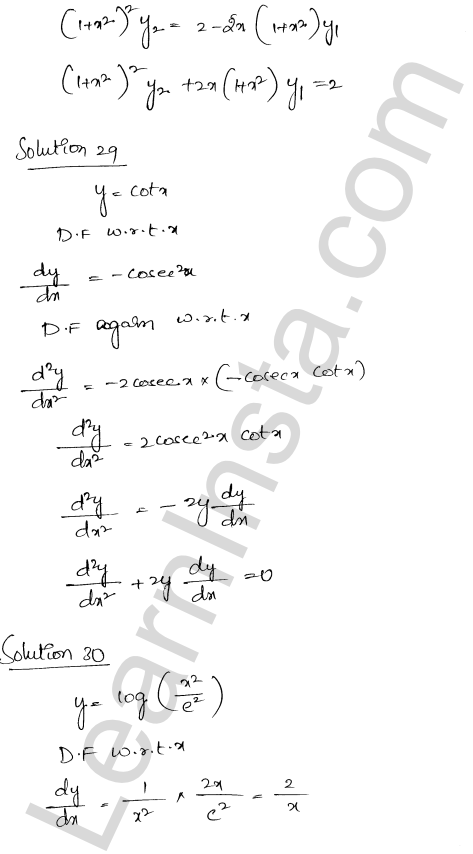 (1+x²)² y₂ = 2-2x (1+x²) y₁
(1+x²)² y₂ +2x (1+x²) y₁ =2
Solution 29
y = cotx
D.F w.r.t.x
dy/dx = -cosec²x
D.F again w.r.t.x
d²y/dx² = -2cosec.x × (-cosecx cotx)
d²y/dx² = 2cosec²x cotx
d²y/dx² = -2y dy/dx
d²y/dx² + 2y dy/dx =0
Solution 30
y = log (x²/e²)
D.F w.r.t.x
dy/dx = 1/x² × 2x/e² = 2/x
LearnInsta.com